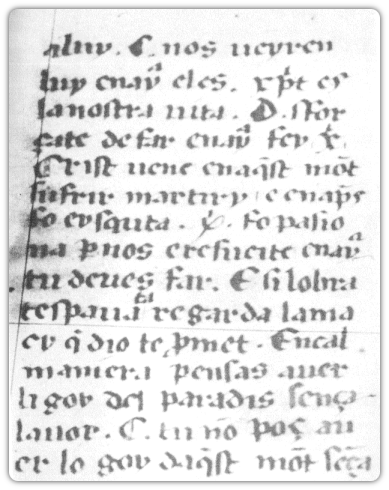 aluy. E. nos ueyren
luy enayᵃ eles. xp̄t es
la nostra uita. D. sfor
çate de far enayᵃ fey x̄.
Crist uene enaq̄st mōt
sufrir martiry e enap̄s
fo eysquita. fo pasio
na ꝑ nos e resucite enayᵃ
tu deues far. E si lobra
tespauāta regarda lama
ey q̄ dio te ꝓmet. Encal
maniera pensas auer
li goy del paradis sença
lauor. E. tu nō poç au
er lo goy daq̄st mōt sēça